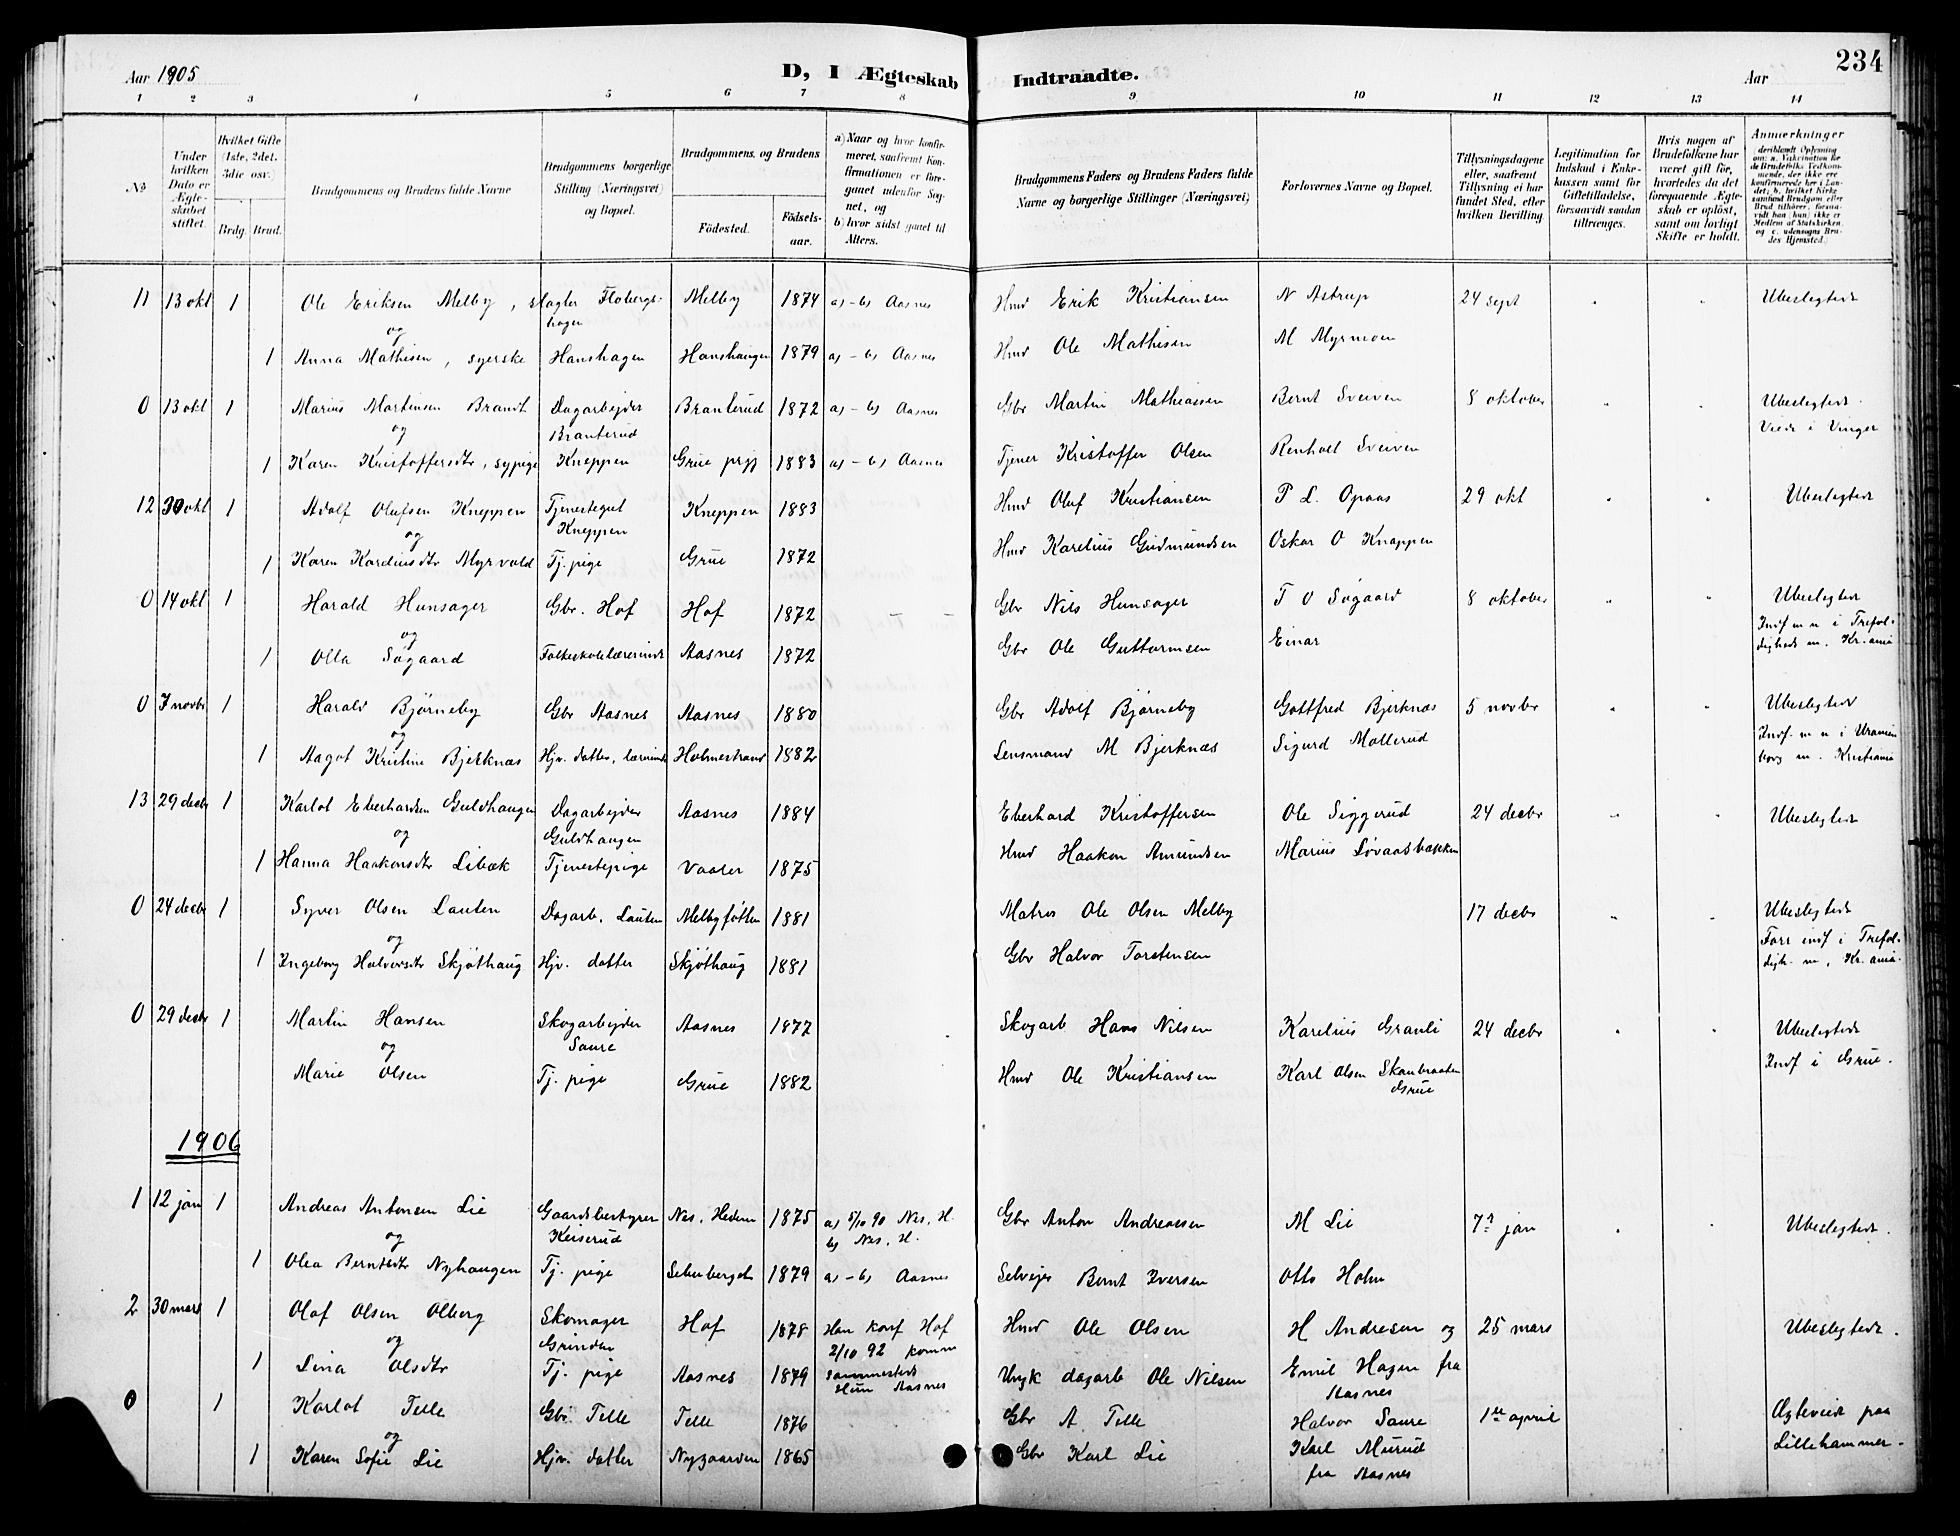 234
Aar 1905 D, I Ægteskab Indtraadte. Aar
1 2 3 4 5 6 7 8 9 10 11 12 13 14
No.
Under hvilken Dato er Ægteskabet stiftet.
Hvilket Gifte (1ste, 2det, 3die osv.)
Brdg. Brud.
Brudgommens og Brudens fulde Navne
Brudgommens borgerlige Stilling (Næringsvei) og Bopæl.
Brudgommens og Brudens
Fødested. Fødselsaar.
a) Naar og hvor konfirmeret, saafremt Konfirmationen er foregaaet udenfor Sognet, og
b) hvor sidst gaaet til Alters.
Brudgommens Faders og Brudens Faders fulde Navne og borgerlige Stillinger (Næringsvei)
Forlovernes Navne og Bopæl.
Tillysningsdagene eller, saafremt Tillysning ei har fundet Sted, efter hvilken Bevilling.
Legitimation for Indskud i Enkekassen samt for Giftetilladelse, forsaavidt saadan tiltrænges.
Hvis nogen af Brudefolkene har været gift før, hvorledes da det foregaaende Ægteskab er opløst, samt om lovligt Skifte er holdt.
Anmerkninger
11 13 okt 1 Ole Eriksen Melby, slagter Flobergshagen Melby 1874 a) - b) Aasnes Hmd Erik Kristiansen N Astrup 24 sept Ubeslegtede
og
1 Anna Mathisen, syerske Hanshagen Hanshaugen 1879 a) - b) Aasnes Hmd Ole Mathisen M Myrmoen
0 13 okt 1 Marius Martinsen Brandt Dagarbejder Branterud Branterud 1872 a) - b) Aasnes Gbr Martin Mathiassen Bernt Sveiven 8 oktober Ubeslegtede.
og Viede i Vinger
1 Karen Kristoffersdtr, sypige Kneppen Grue prgj 1883 a) - b) Aasnes Tjener Kristoffer Olsen Renholt Sveiven
12 30 okt 1 Adolf Olufsen Kneppen Tjenestegut Kneppen Kneppen 1883 Hmd Oluf Kristiansen P L. Opaas 29 okt Ubeslegtede
og
1 Karen Kareliusdtr Myrvold Tj. pige Grue 1872 Hmd Karelius Gudmundsen Oskar O Knappen
0 14 okt 1 Harald Hunsager Gbr. Hof Hof 1872 Gbr Nils Hunsager T O Søgaard 8 oktober Ubeslegtede
og Indf m n i Trefoldigheds m. Kr.ania
1 Olla Søgaard Folkeskolelærerinde Aasnes 1872 Gbr Ole Guttormsen Einar
0 7 novbr 1 Harald Bjørneby Gbr Aasnes Aasnes 1880 Gbr Adolf Bjørneby Gottfred Bjerknæs 5 novbr Ubeslegtede
og Indf. m n i Uranienborg m. Kristiania
1 Aagot Kristine Bjerknæs Hjv. datter, lærerinde Holmestrand 1882 Lensmand M Bjerknæs Sigurd Møllerud
13 29 decbr 1 Karlot Eberhardsen Guldhaugen Dagarbejder Guldhaugen Aasnes 1884 Eberhard Kristoffersen Ole Siggerud 24 decbr Ubeslegtede
og
1 Hanna Haakonsdtr Libæk Tjenestepige Vaaler 1875 Hmd Haakon Amundsen Marius Løvaasbakken
0 24 decbr 1 Syver Olsen Lauten Dagarb. Lauten Melbyføtten 1881 Matros Ole Olsen Melby 17 decbr Ubeslegtede
og Forr indf i Trefoldigh. m, Kr.ania.
1 Ingeborg Halvorsdtr Skjøthaug Hjv. datter Skjøthaug 1881 Gbr Halvor Torstensen
0 29 decbr 1 Martin Hansen Skogarbejder Saure Aasnes 1877 Skogarb Hans Nilsen Karelius Granli 24 decbr Ubeslegtede
og Indf i Grue.
1 Marie Olsen Tj. pige Grue 1882 Hmd Ole Kristiansen Karl Olsen Skaubraaten Grue
1906
1 12 jan 1 Andreas Antonsen Lie Gaardsbestyrer Keiserud Nes, Hedem 1875 a) 5/10 90 Nes, H. b) Nes, H. Gbr Anton Andreassen M Lie 7de jan Ubeslegtede.
og
1 Olea Berntsdtr Nyhaugen Tj. pige 1879 a) - b) Aasnes Selvejer Bernt Iversen Otto Holm
2 30 mars 1 Olaf Olsen Olberg Skomager Grindan Hof 1878 Han konf Hof 2/10 92 komm sammesteds Hmd Ole Olsen H Andresen og 25 mars Ubeslegtede.
og
1 Lina Olsdtr Tj. pige Aasnes 1879 Hun Aasnes Ungk dagarb Ole Nilsen Emil Hagen fra Aasnes
0 1 Karlot Telle Gbr. Telle Telle 1876 Gbr A Telle Halvor Saure 1ste april Ægteviede paa Lillehammer.
og
1 Karen Sofie Lie Hjv. datter Nygaarden 1865 Gbr Karl Lie Karl Murud fra Aasnes